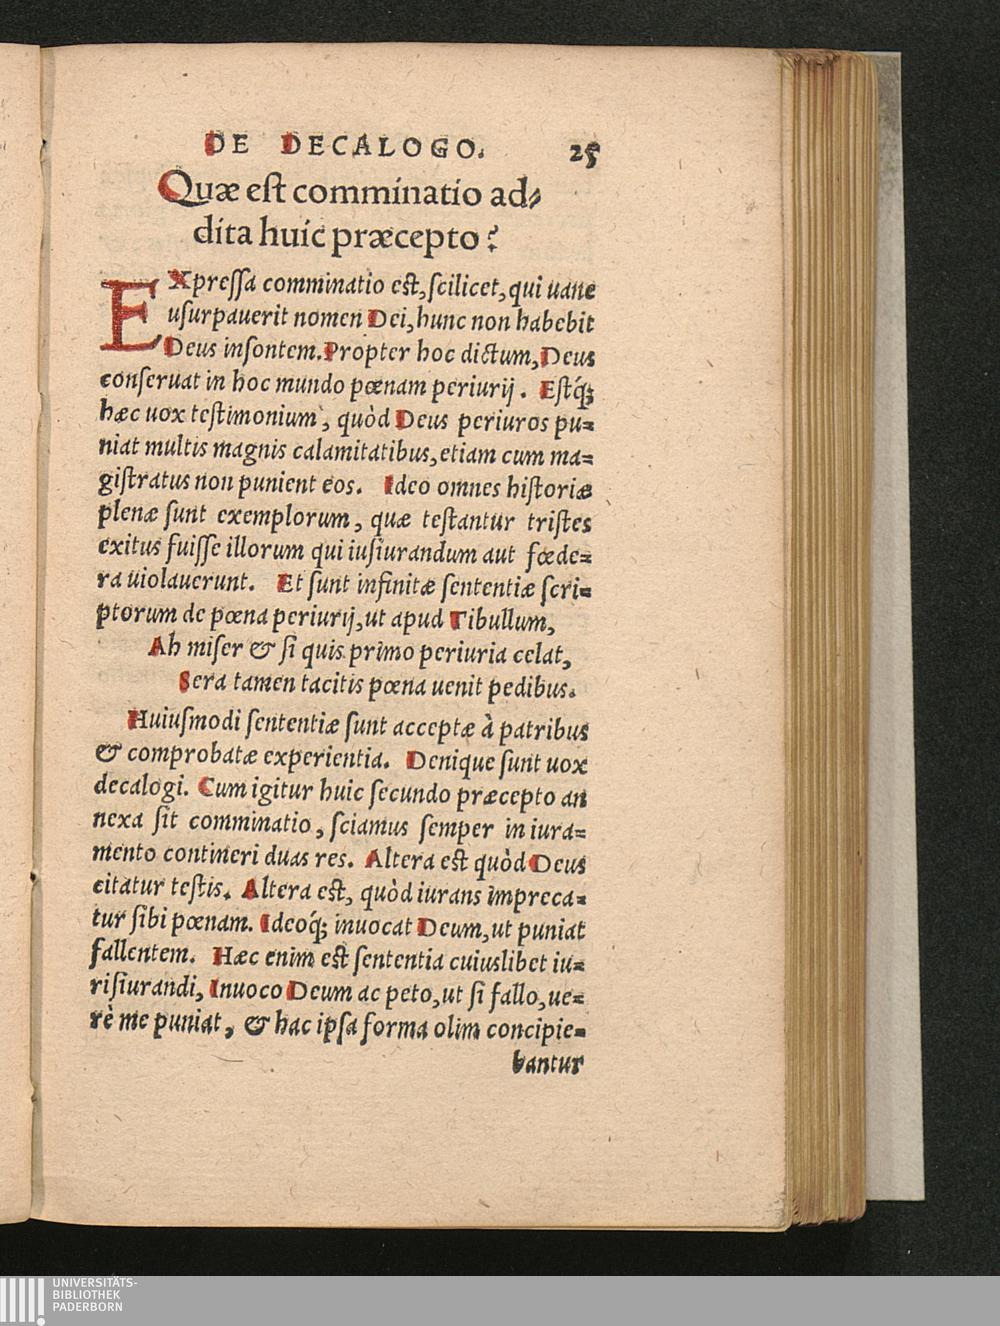 DE DECALOGO. 25
Quæ est comminatio ad⸗
dita huic præcepto?
EXpreſſa comminatio est, ſcilicet, qui uane
uſurpauerit nomen Dei, hunc non habebit
Deus inſontem. Propter hoc dictum, Deus
conſeruat in hoc mundo pœnam periurij. Eſtq́;
hæc uox teſtimonium, quòd Deus periuros pu⸗
niat multis magnis calamitatibus, etiam cum ma⸗
giſtratus non punient eos. Ideo omnes hiſtoriæ
plenæ ſunt exemplorum, quæ teſtantur triſtes
exitus fuiſſe illorum qui iuſiurandum aut fœde⸗
ra uiolauerunt. Et ſunt infinitæ ſententiæ ſcri⸗
ptorum de pœna periurij, ut apud Tibullum,
Ah miſer & ſi quis primo periuria celat,
Sera tamen tacitis pœna uenit pedibus.
Huiuſmodi ſententiæ ſunt acceptæ à patribus
& comprobatæ experientia. Denique ſunt uox
decalogi. Cum igitur huic ſecundo præcepto an
nexa ſit comminatio, ſciamus ſemper in iura⸗
mento contineri duas res. Altera est quòd Deus
citatur teſtis. Altera est, quòd iurans impreca⸗
tur ſibi pœnam. Ideoq́; inuocat Deum, ut puniat
fallentem. Hæc enim est ſententia cuiuslibet iu⸗
riſiurandi, Inuoco Deum ac peto, ut ſi fallo, ue⸗
rè me puniat, & hac ipſa forma olim concipie⸗
bantur
UNIVERSITÄTS-
BIBLIOTHEK
PADERBORN